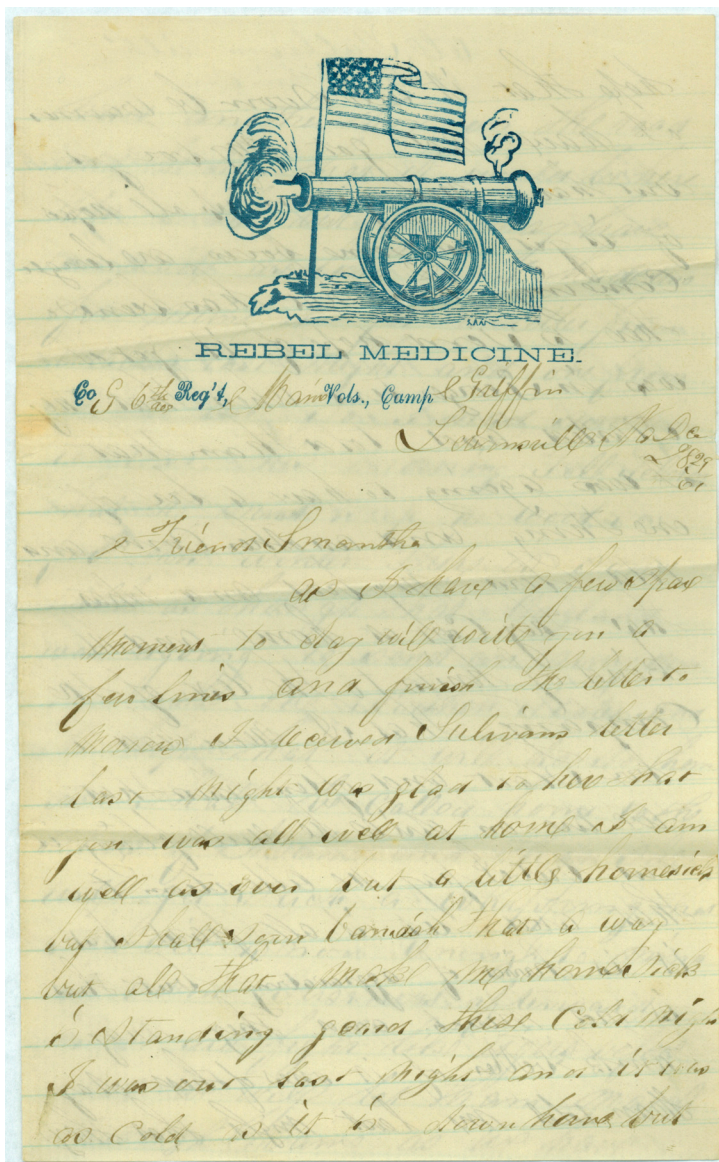 REBEL MEDICINE.
Co G 6th Reg't, Main Vols., Camp Griffin
Va De
1829
61
Friend Smantha
as I have a few spare
moment to day will write you a
few lines and finish the letter to
morow I received Sulivans letter
last night was glad to hear that
you was all well at home I am
well as ever but a little homesick
but shall soon banish that a way
but all that make me home sick
is standing geard these cold nigh
I was out last night and it was
as cold as it is down home but